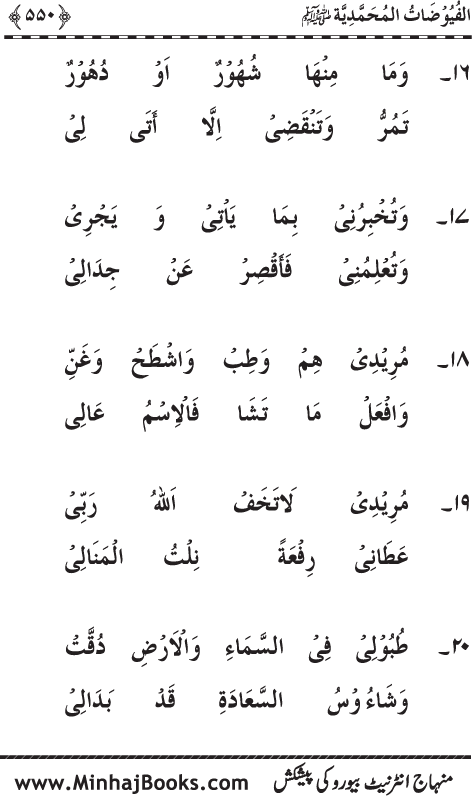 الفُیُوْضَاتُ المُحَمَّدِیَّة ﷺ ﴿۵۵۰﴾
۱۶۔ وَمَا مِنْهَا شُهُوْرٌ اَوْ دُهُوْرٌ
تَمُرُّ وَتَنْقَضِیْ اِلَّا أَتَی لِیْ
۱۷۔ وَتُخْبِرُنِیْ بِمَا یَأْتِیْ وَ یَجْرِیْ
وَتُعْلِمُنِیْ فَأَقْصِرْ عَنْ جِدَالِیْ
۱۸۔ مُرِیْدِیْ هِمْ وَطِبْ وَاشْطَحْ وَغَنِّ
وَافْعَلْ مَا تَشَا فَالْاِسْمُ عَالِی
۱۹۔ مُرِیْدِیْ لَاتَخَفْ اَللهُ رَبِّیْ
عَطَانِیْ رِفْعَةً نِلْتُ الْمَنَالِیْ
۲۰۔ طُبُوْلِیْ فِیْ السَّمَاءِ وَالْاَرْضِ دُقَّتْ
وَشَاءُوْسُ السَّعَادَةِ قَدْ بَدَالِیْ
منہاج انٹرنیٹ بیورو کی پیشکش www.MinhajBooks.com